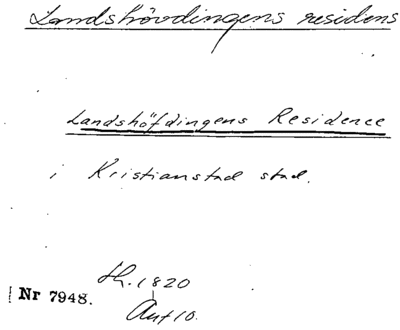 Landshövdingens residens
Landshöfdingens Residence
i Kristianstad stad.
H. 1820
Nr 7948.
Ant 10.